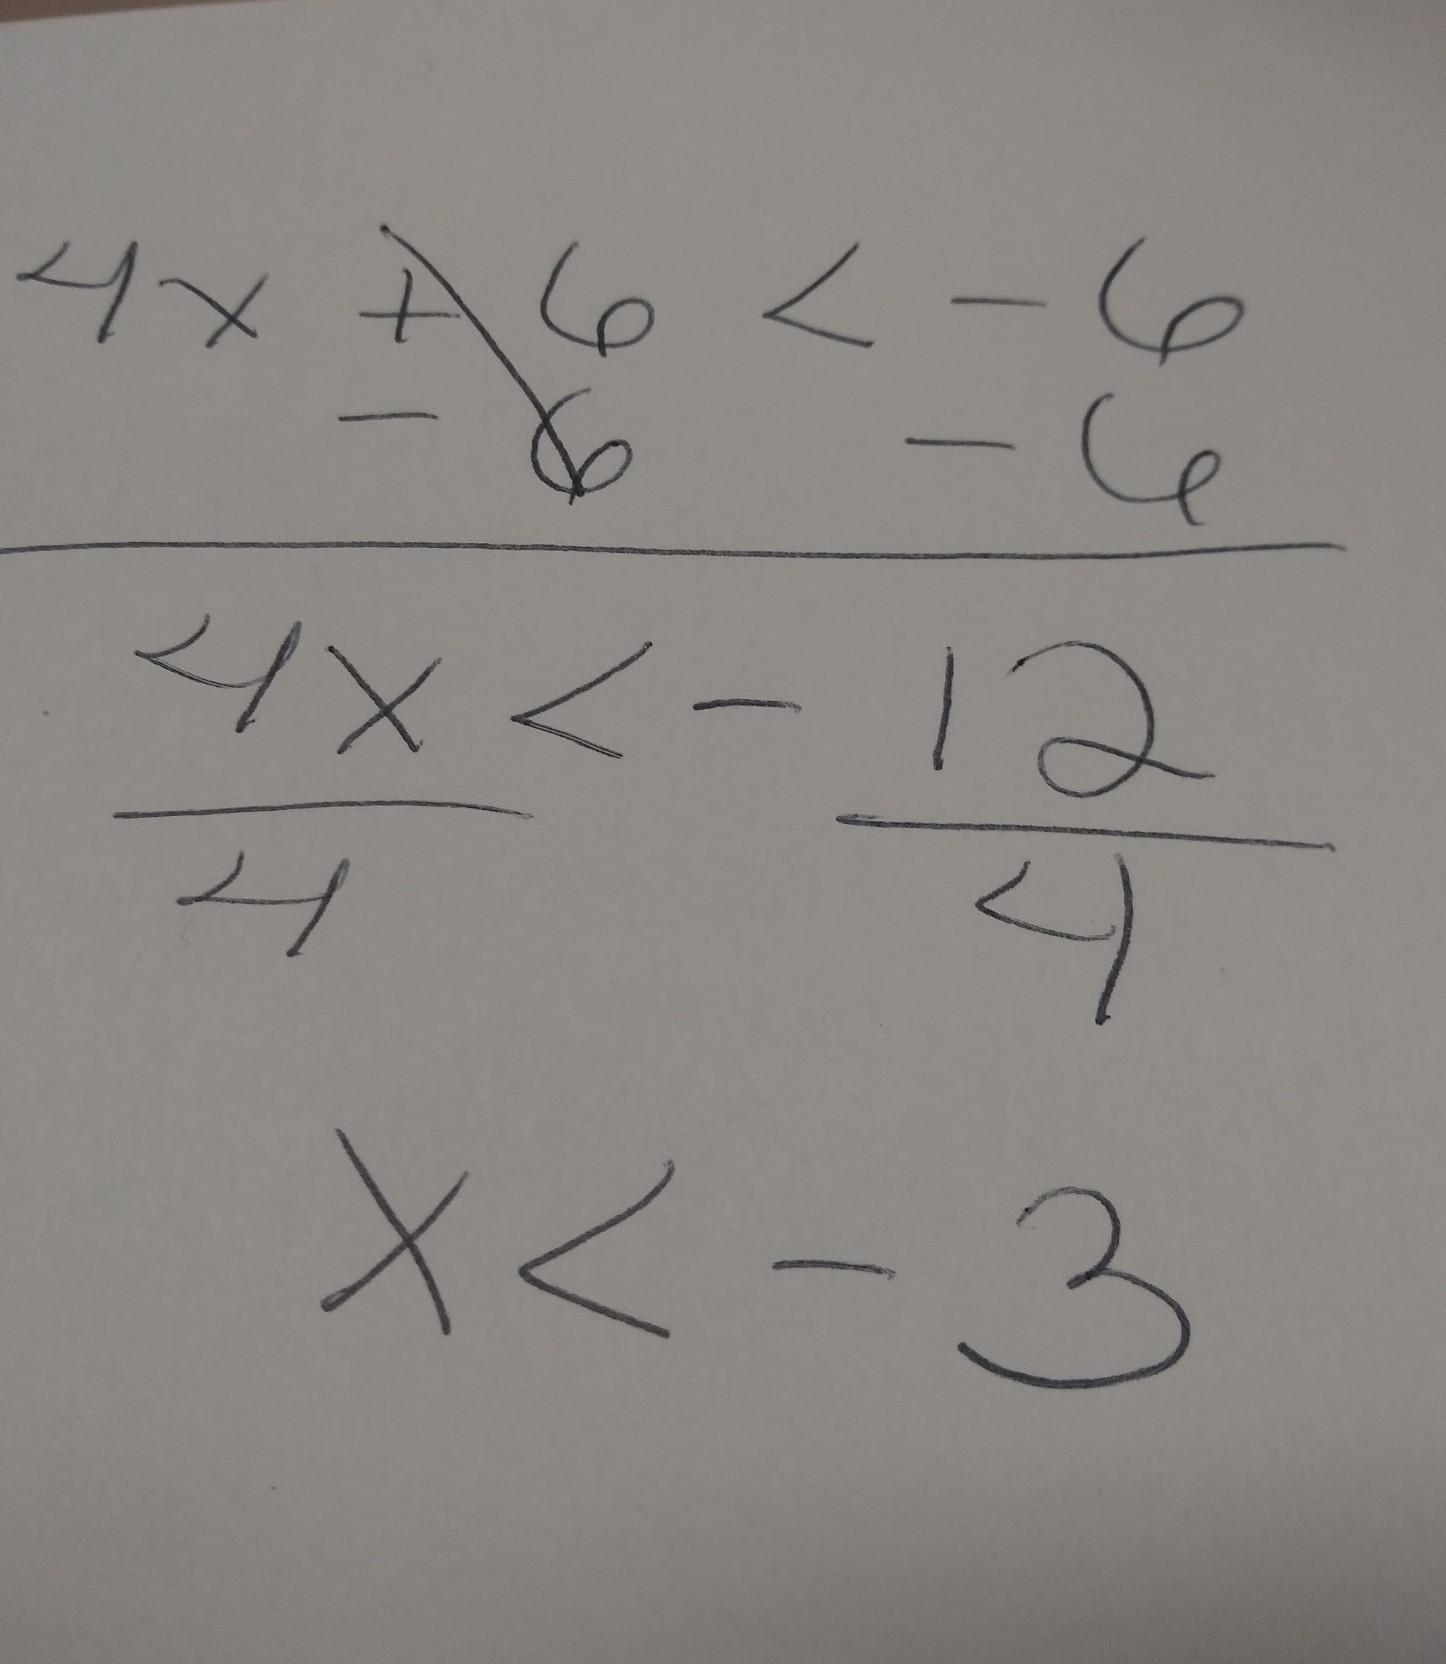 4x + 6 < - 6
- 6 - 6
4x < - 12
4 4
x < - 3